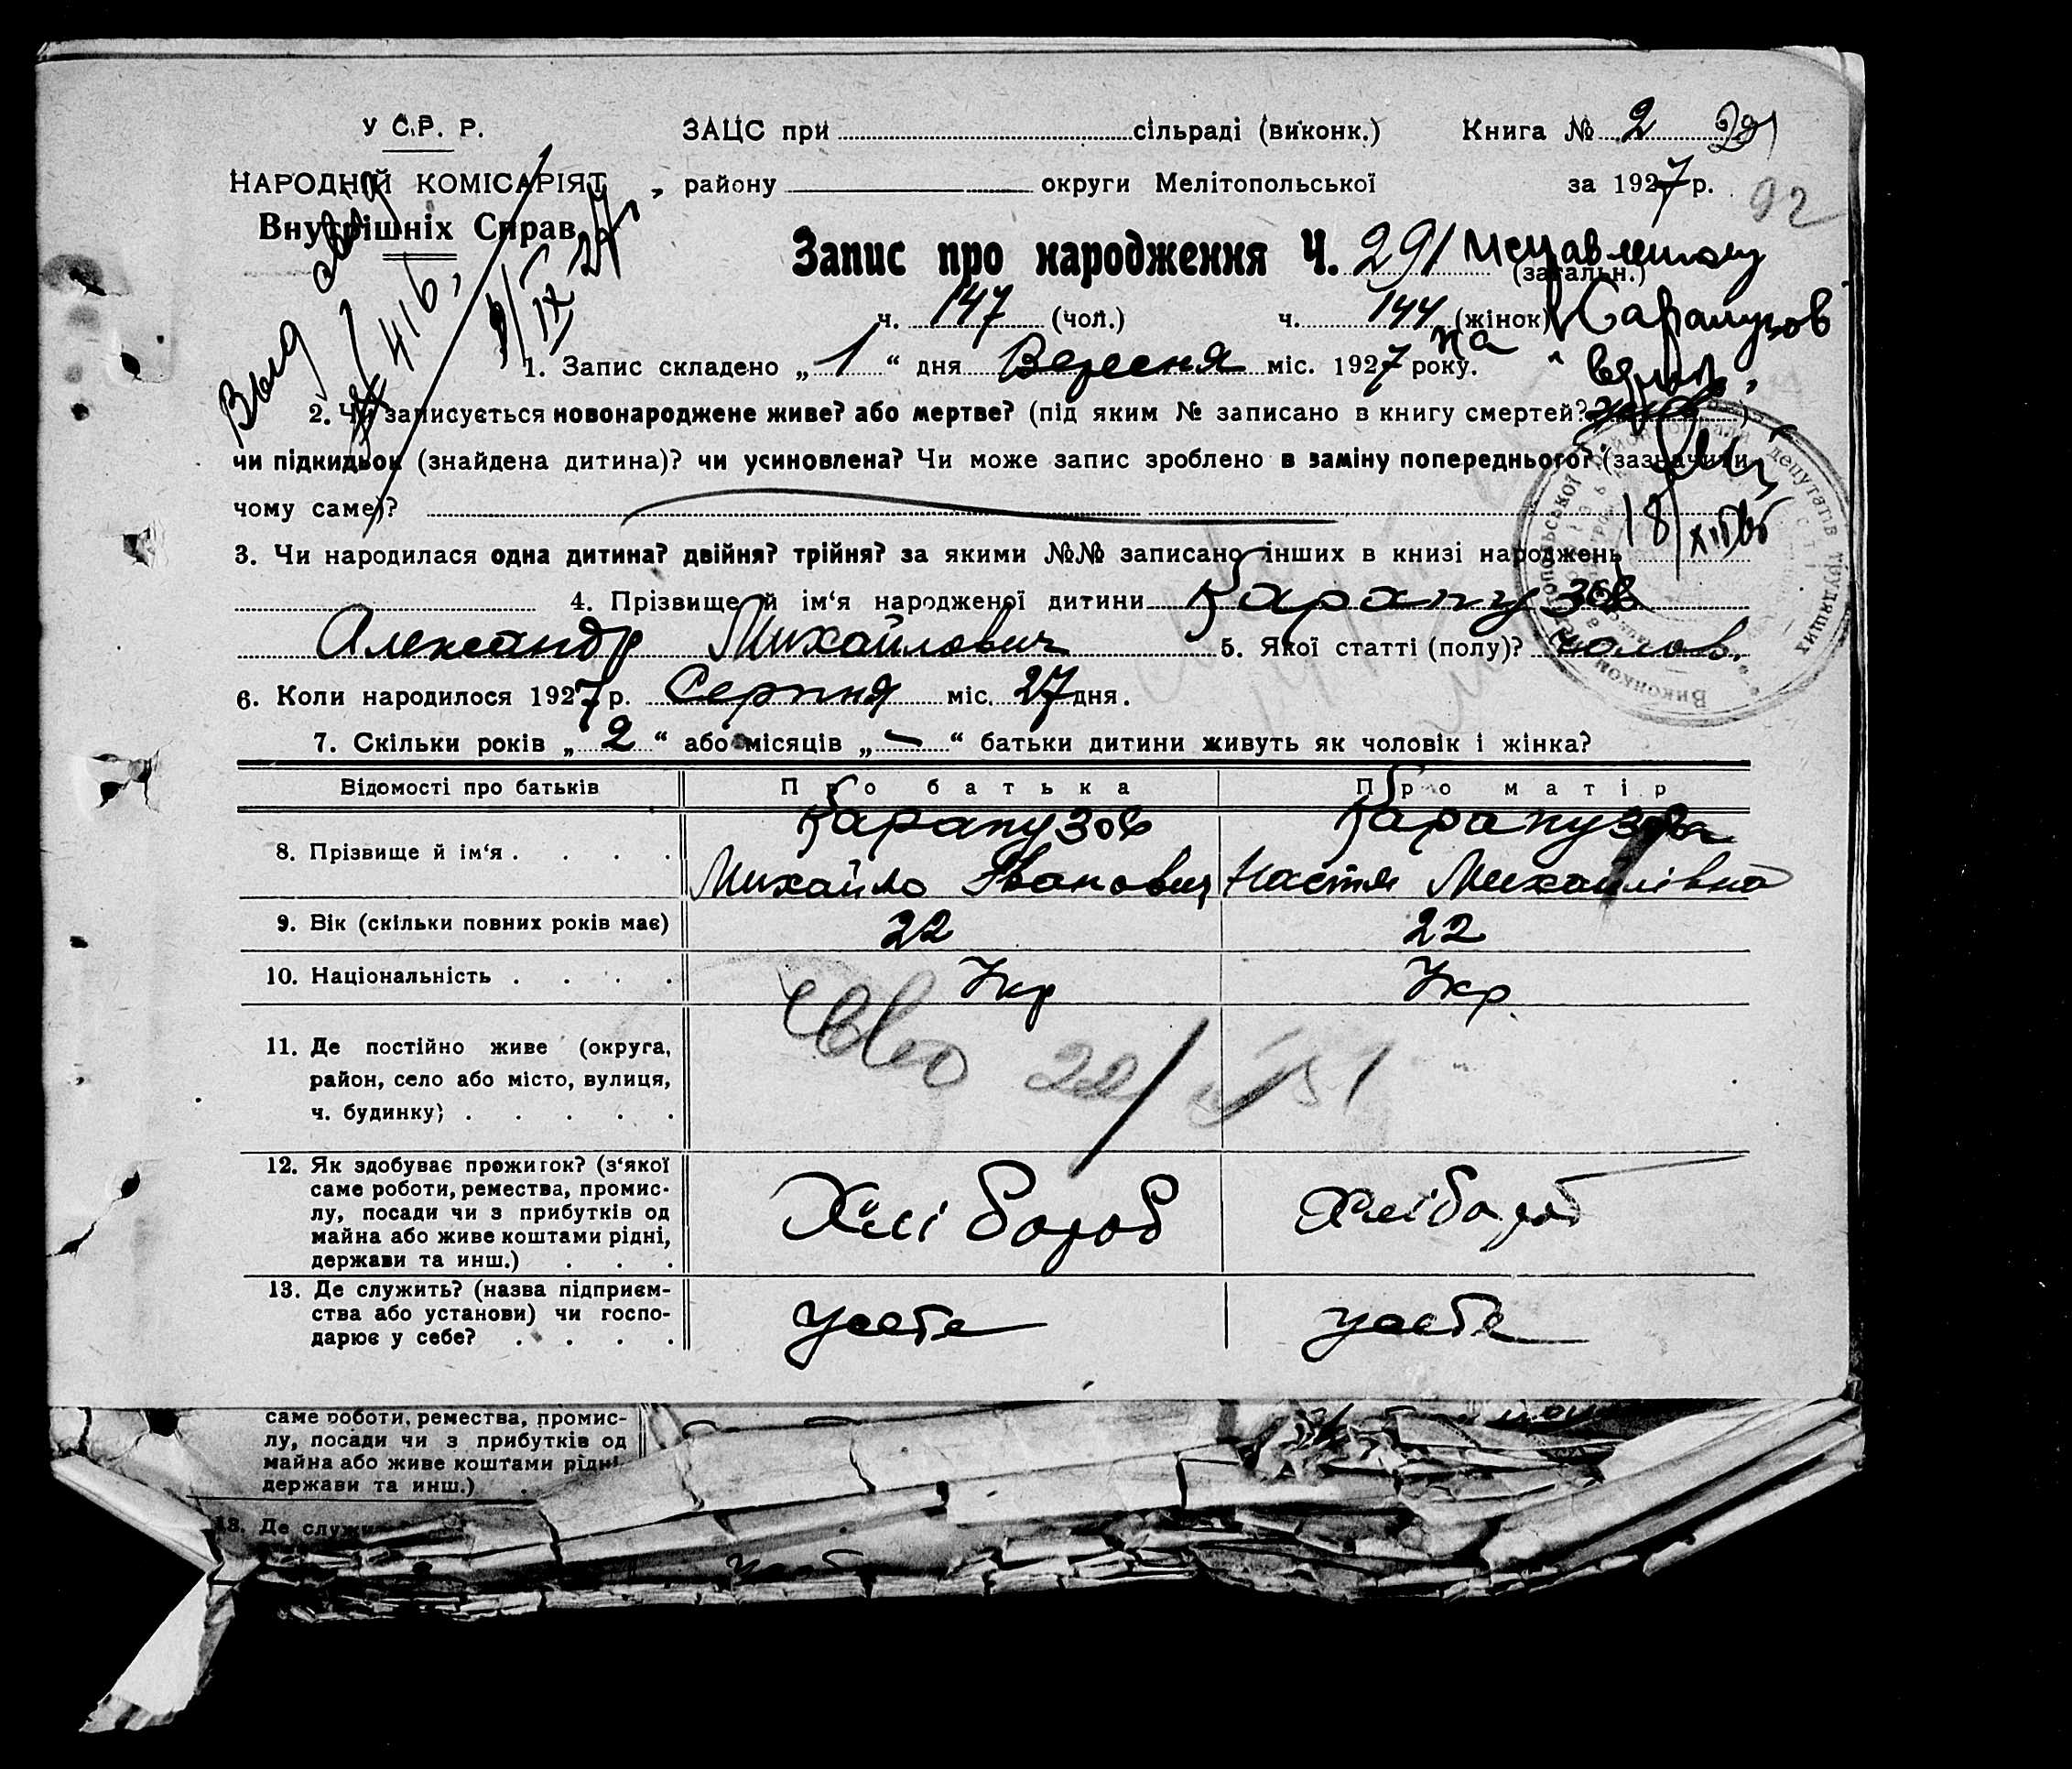 У С.Р. Р.
ЗАЦС при сільраді (виконк.) Книга № 2
НАРОДНІЙ КОМІСАРІЯТ
району округи Мелітопольської за 1927 р.
92
Внутрішніх Справ
Запис про народження Ч. 291 (загальн.)
ч. 147 (чол.) ч. 144 (жінок)
1. Запис складено „ 1 “ дня Вересня міс. 1927 року.
2. Чи записується новонароджене живе? або мертве? (під яким № записано в книгу смертей? )
чи підкидьок (знайдена дитина)? чи усиновлена? Чи може запис зроблено в заміну попереднього? (зазначити
чому саме)?
3. Чи народилася одна дитина? двійня? трійня? за якими №№ записано інших в книзі народжень
4. Прізвище й ім‘я народженої дитини Карапузов
Александр Михайлович 5. Якої статті (полу)? чолов.
6. Коли народилося 1927 р. Серпня міс. 27 дня.
7. Скільки років „ 2 “ або місяців „ — “ батьки дитини живуть як чоловік і жінка?
Відомості про батьків Про батька Про матір
8. Прізвище й ім‘я . . . . Карапузов Карапузова
Михайло Іванович Настя Михайлівна
9. Вік (скільки повних років має) 22 22
10. Національність . . . . Укр Укр.
11. Де постійно живе (округа,
район, село або місто, вулиця,
ч. будинку) . . . . .
12. Як здобуває прожиток? (з‘якої
саме роботи, ремества, промис-
лу, посади чи з прибутків од
майна або живе коштами рідні,
держави та инш.) . . .
Хлібороб Хлібороб
13. Де служить? (назва підприєм-
ства або установи) чи госпо-
дарює у себе? . . . .
у себе у себе
саме роботи, ремества, промис-
лу, посади чи з прибутків од
майна або живе коштами рідні
держави та инш.) .
13. Де служи